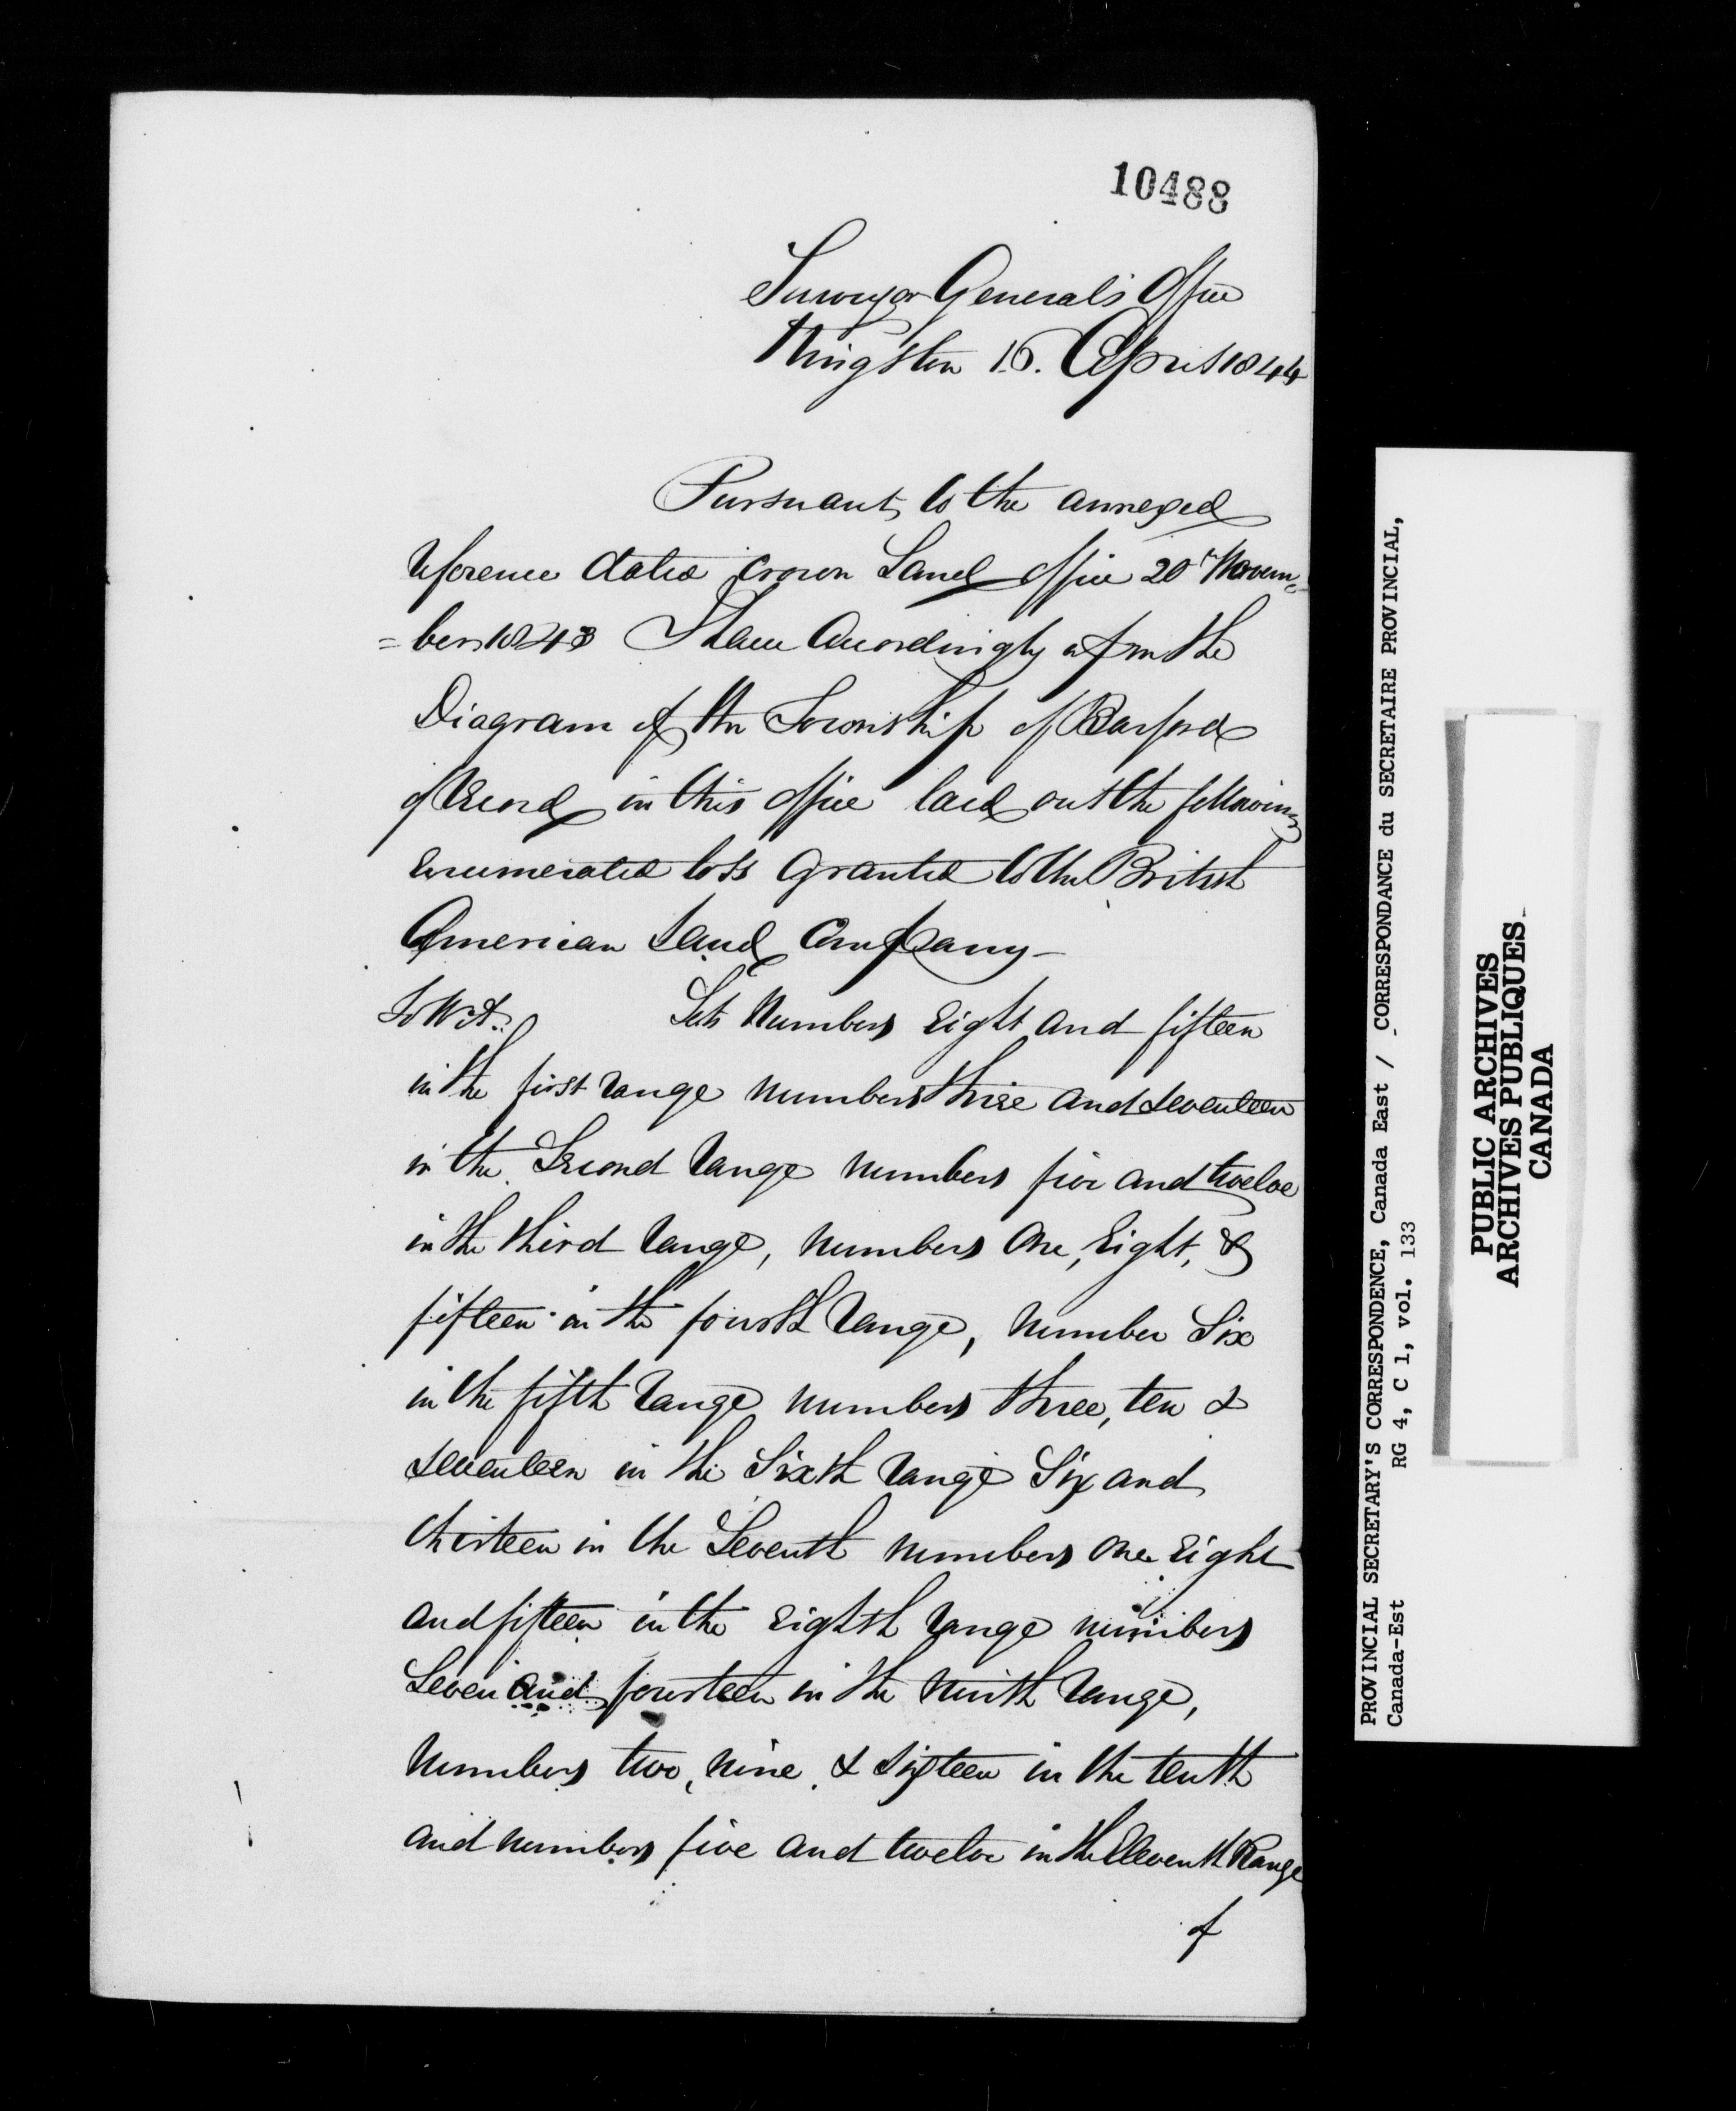 10488
Surveyor General's Office
Kingston 16. April 1844
Pursuant to the annexed
reference dated Crown Land Office 20th Novem=
=ber 1843 I have accordingly upon the
Diagram of the Township of Barford
of Record in this office laid out the following
enumerated lots granted to the British
American Land Company—
To Wit: Lots Numbers Eight and fifteen
in the first range numbers three and seventeen
in the Second range numbers five and twelve
in the third range, numbers One, Eight, &
fifteen in the fourth range, number Six
in the fifth range numbers three, ten &
seventeen in the Sixth range Six and
thirteen in the Seventh numbers one Eight
and fifteen in the Eighth range numbers
Seven and fourteen in the Ninth range,
Numbers two, nine, & sixteen in the tenth
and numbers five and twelve in the Eleventh Range
of
PROVINCIAL SECRETARY'S CORRESPONDENCE, Canada East / CORRESPONDANCE du SECRETAIRE PROVINCIAL,
Canada-Est RG 4, C 1, vol. 133
PUBLIC ARCHIVES
ARCHIVES PUBLIQUES
CANADA